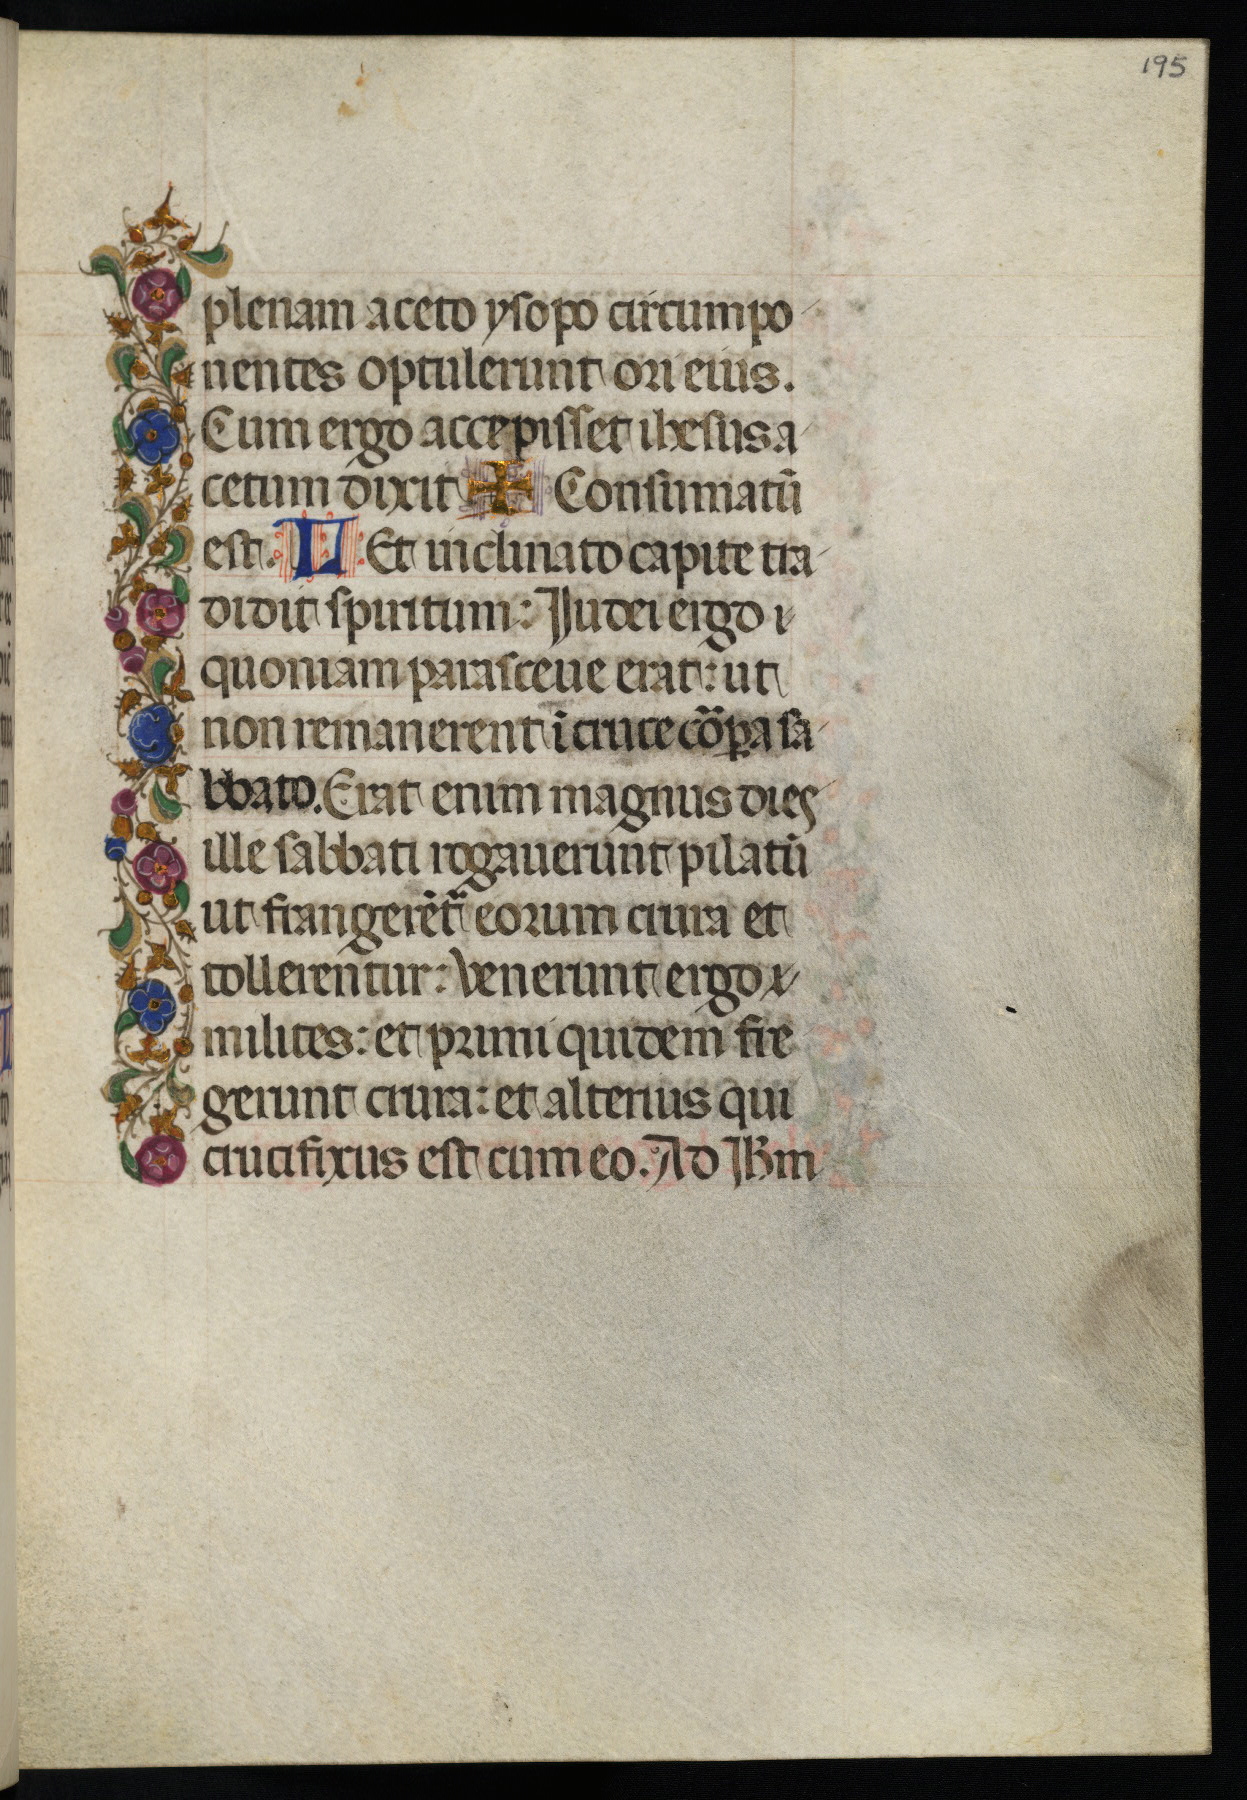 195
plenam aceto ysopo circumpo
nentes optulerunt ori eius.
Cum ergo accepisset ihesus a
cetum dixit ✠ Consumatũ
est. C Et inclinato capite tra
didit spiritum: Judei ergo
quoniam parasceue erat: ut
non remanerent ĩ cruce cõꝑa sa
bbato. Erat enim magnus dies
ille sabbati rogauerunt pilatũ
ut frangerẽt eorum crura et
tollerentur: Venerunt ergo
milites: et primi quidem fre
gerunt crura: et alterius qui
crucifixus est cum eo. Ad Ihm